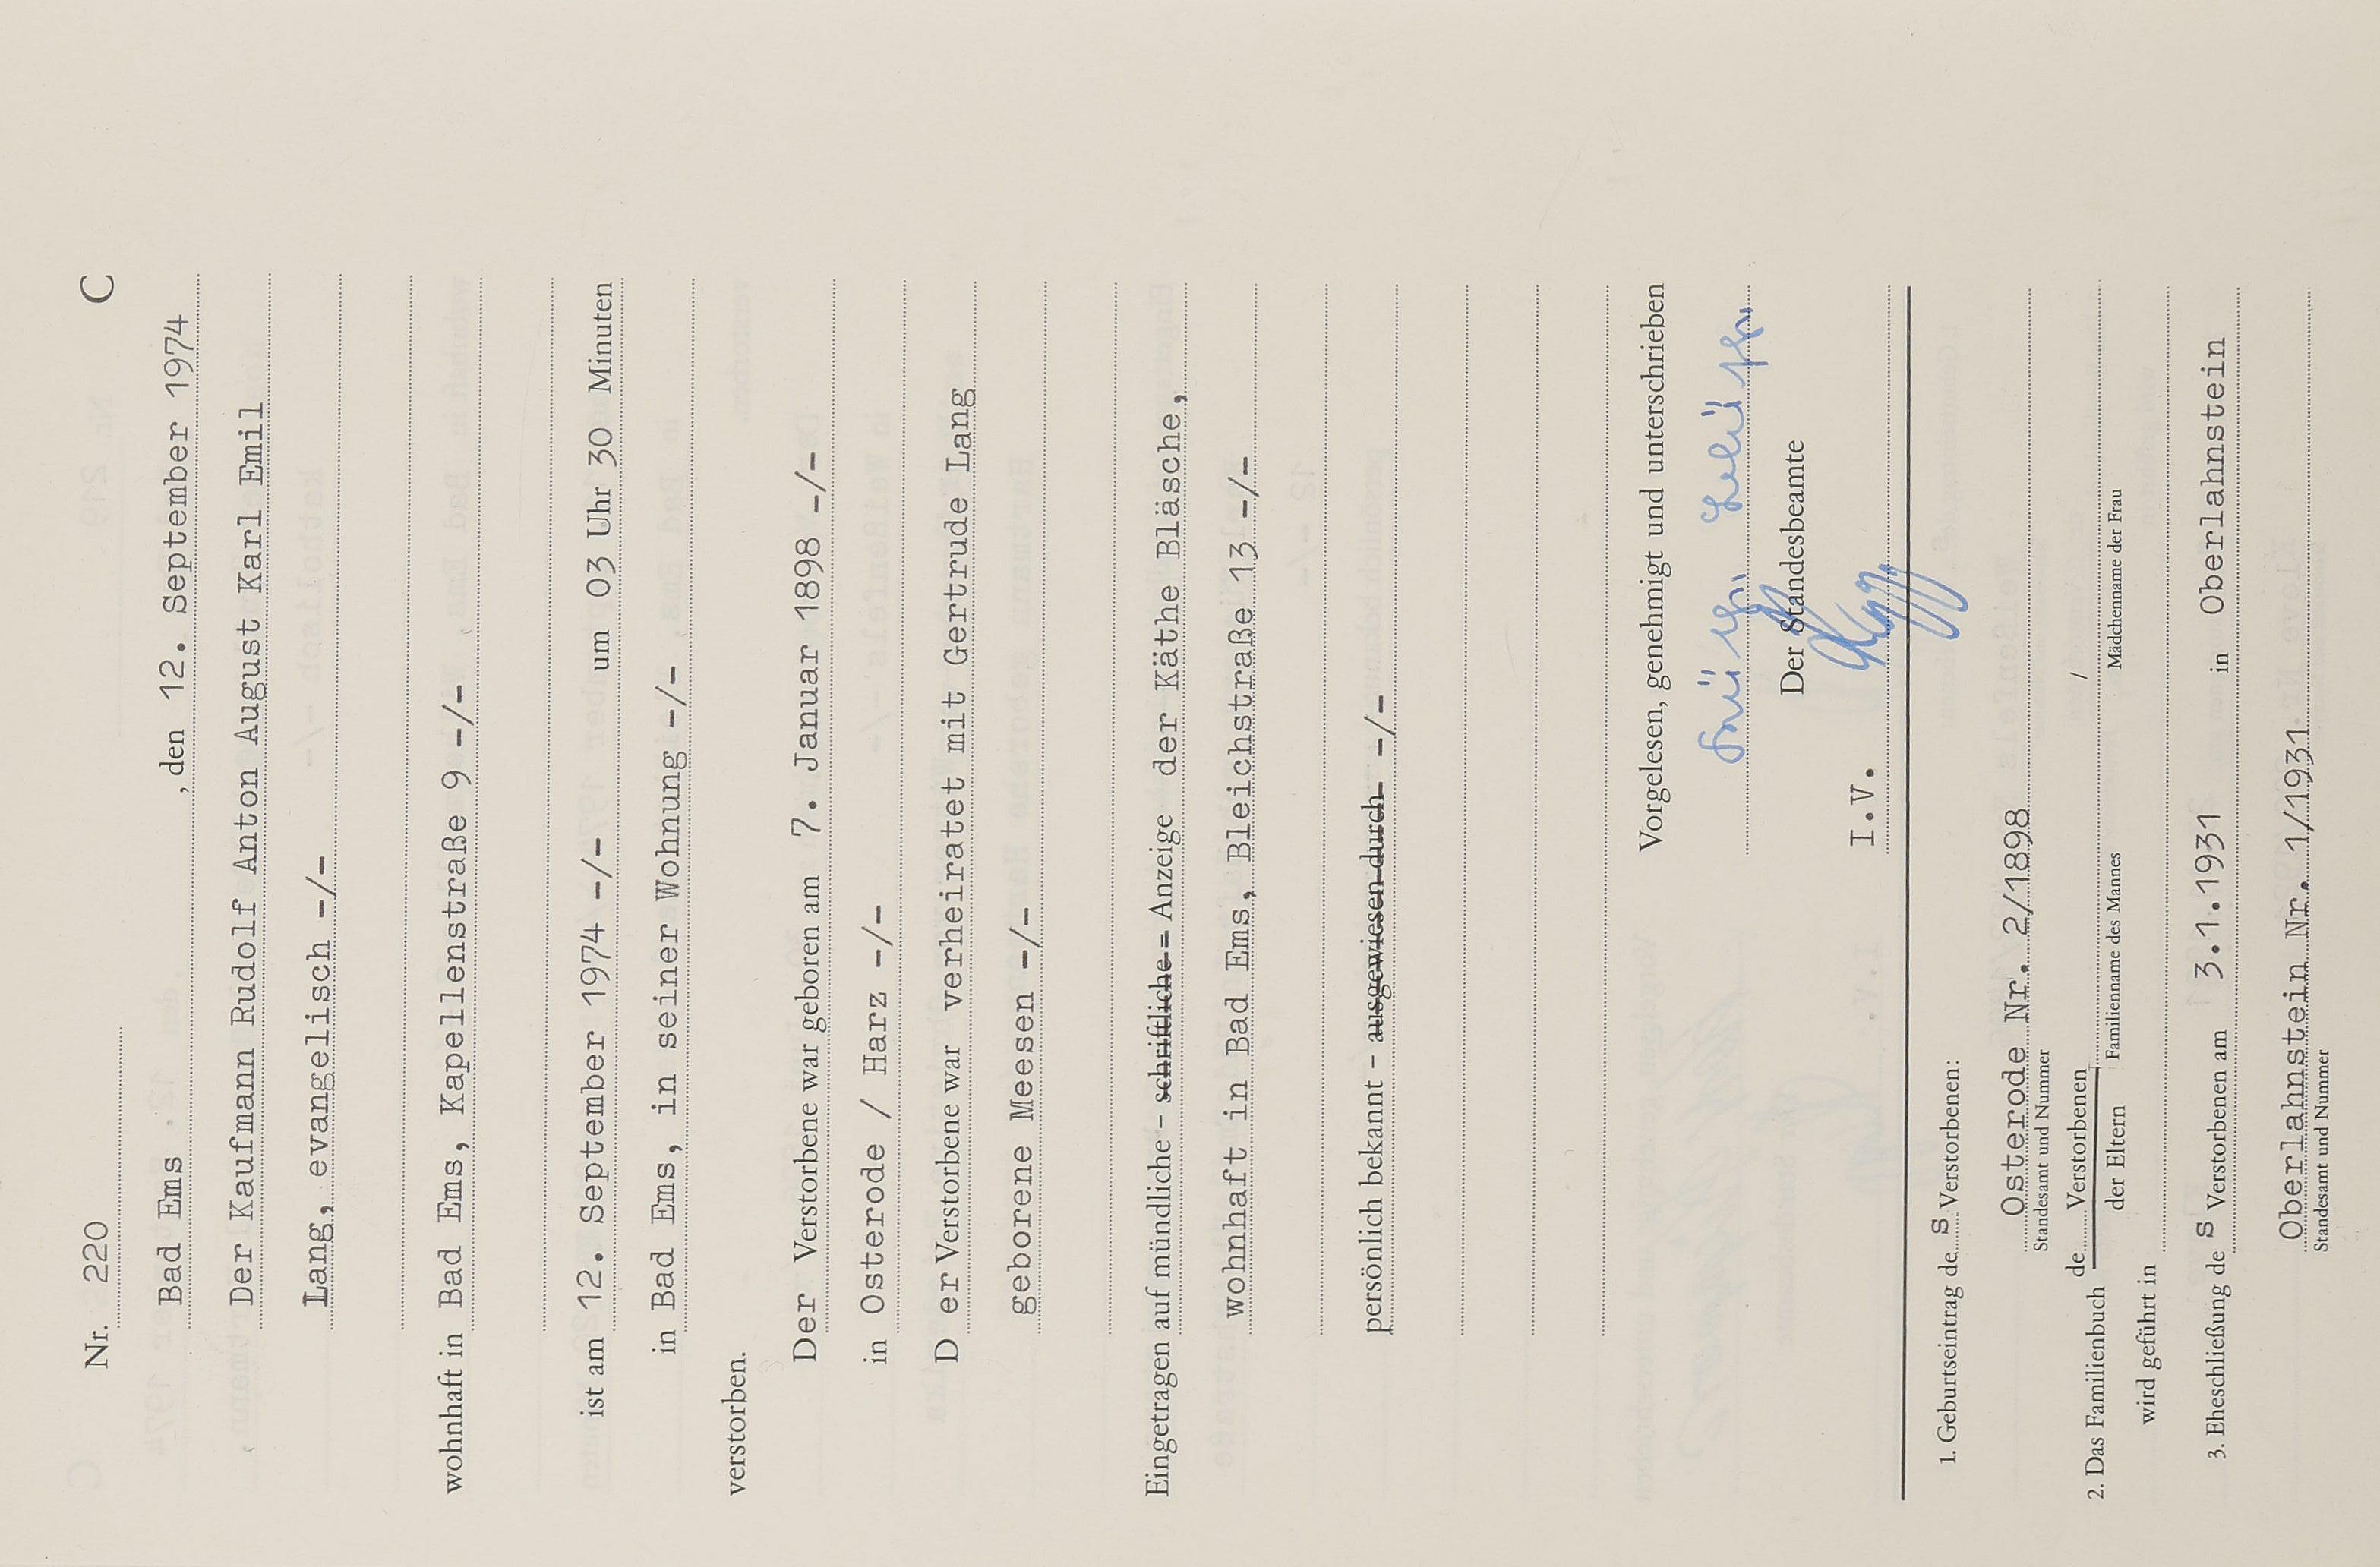 Nr. 220 C
Bad Ems , den 12. September 1974
Der Kaufmann Rudolf Anton August Karl Emil
Lang, evangelisch -/-
wohnhaft in Bad Ems, Kapellenstraße 9 -/-
ist am 12. September 1974 -/- um 03 Uhr 30 Minuten
in Bad Ems, in seiner Wohnung -/-
verstorben.
Der Verstorbene war geboren am 7. Januar 1898 -/-
in Osterode / Harz -/-
D er Verstorbene war verheiratet mit Gertrude Lang
geborene Meesen -/-
Eingetragen auf mündliche - schriftliche = Anzeige der Käthe Bläsche,
wohnhaft in Bad Ems, Bleichstraße 13 -/-
persönlich bekannt - ausgewiesen durch -/-
Vorgelesen, genehmigt und unterschrieben
Der Standesbeamte
I.V.
1. Geburtseintrag de s Verstorbenen:
Osterode Nr. 2/1898
Standesamt und Nummer
2. Das Familienbuch de Verstorbenen /
der Eltern Familienname des Mannes Mädchenname der Frau
wird geführt in
3. Eheschließung de s Verstorbenen am 3.1.1931 in Oberlahnstein
Oberlahnstein Nr. 1/1931
Standesamt und Nummer